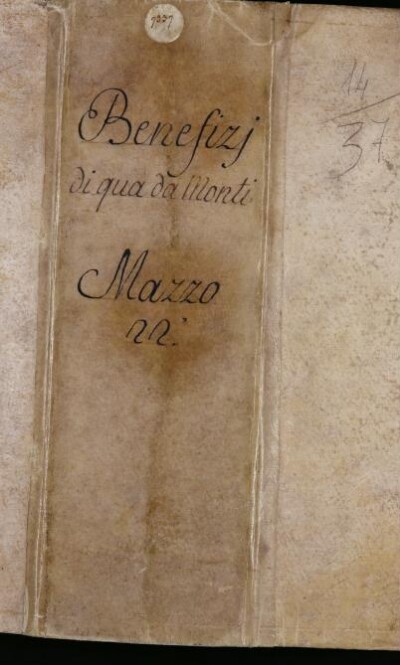 Benefizj
di qua da Monti
Mazzo
22.
14
37